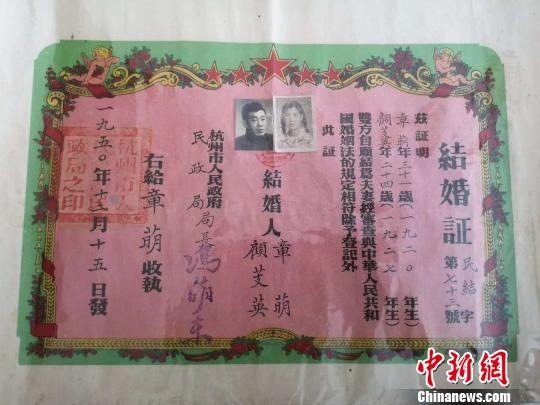 結婚証
民結字
第七十三號
茲証明
章萌年三十一歲(一九二〇年生)
顧芰英年二十四歲(一九二七年生)
雙方自願結爲夫妻經審查與中華人民共和
國婚姻法的規定相符除予登記外
此証
結婚人 章萌
顧芰英
杭州市人民政府
民政局局長
右給章萌收執
一九五〇年十二月十五日發
杭州市人
政局之印
中新网
www.chinanews.com